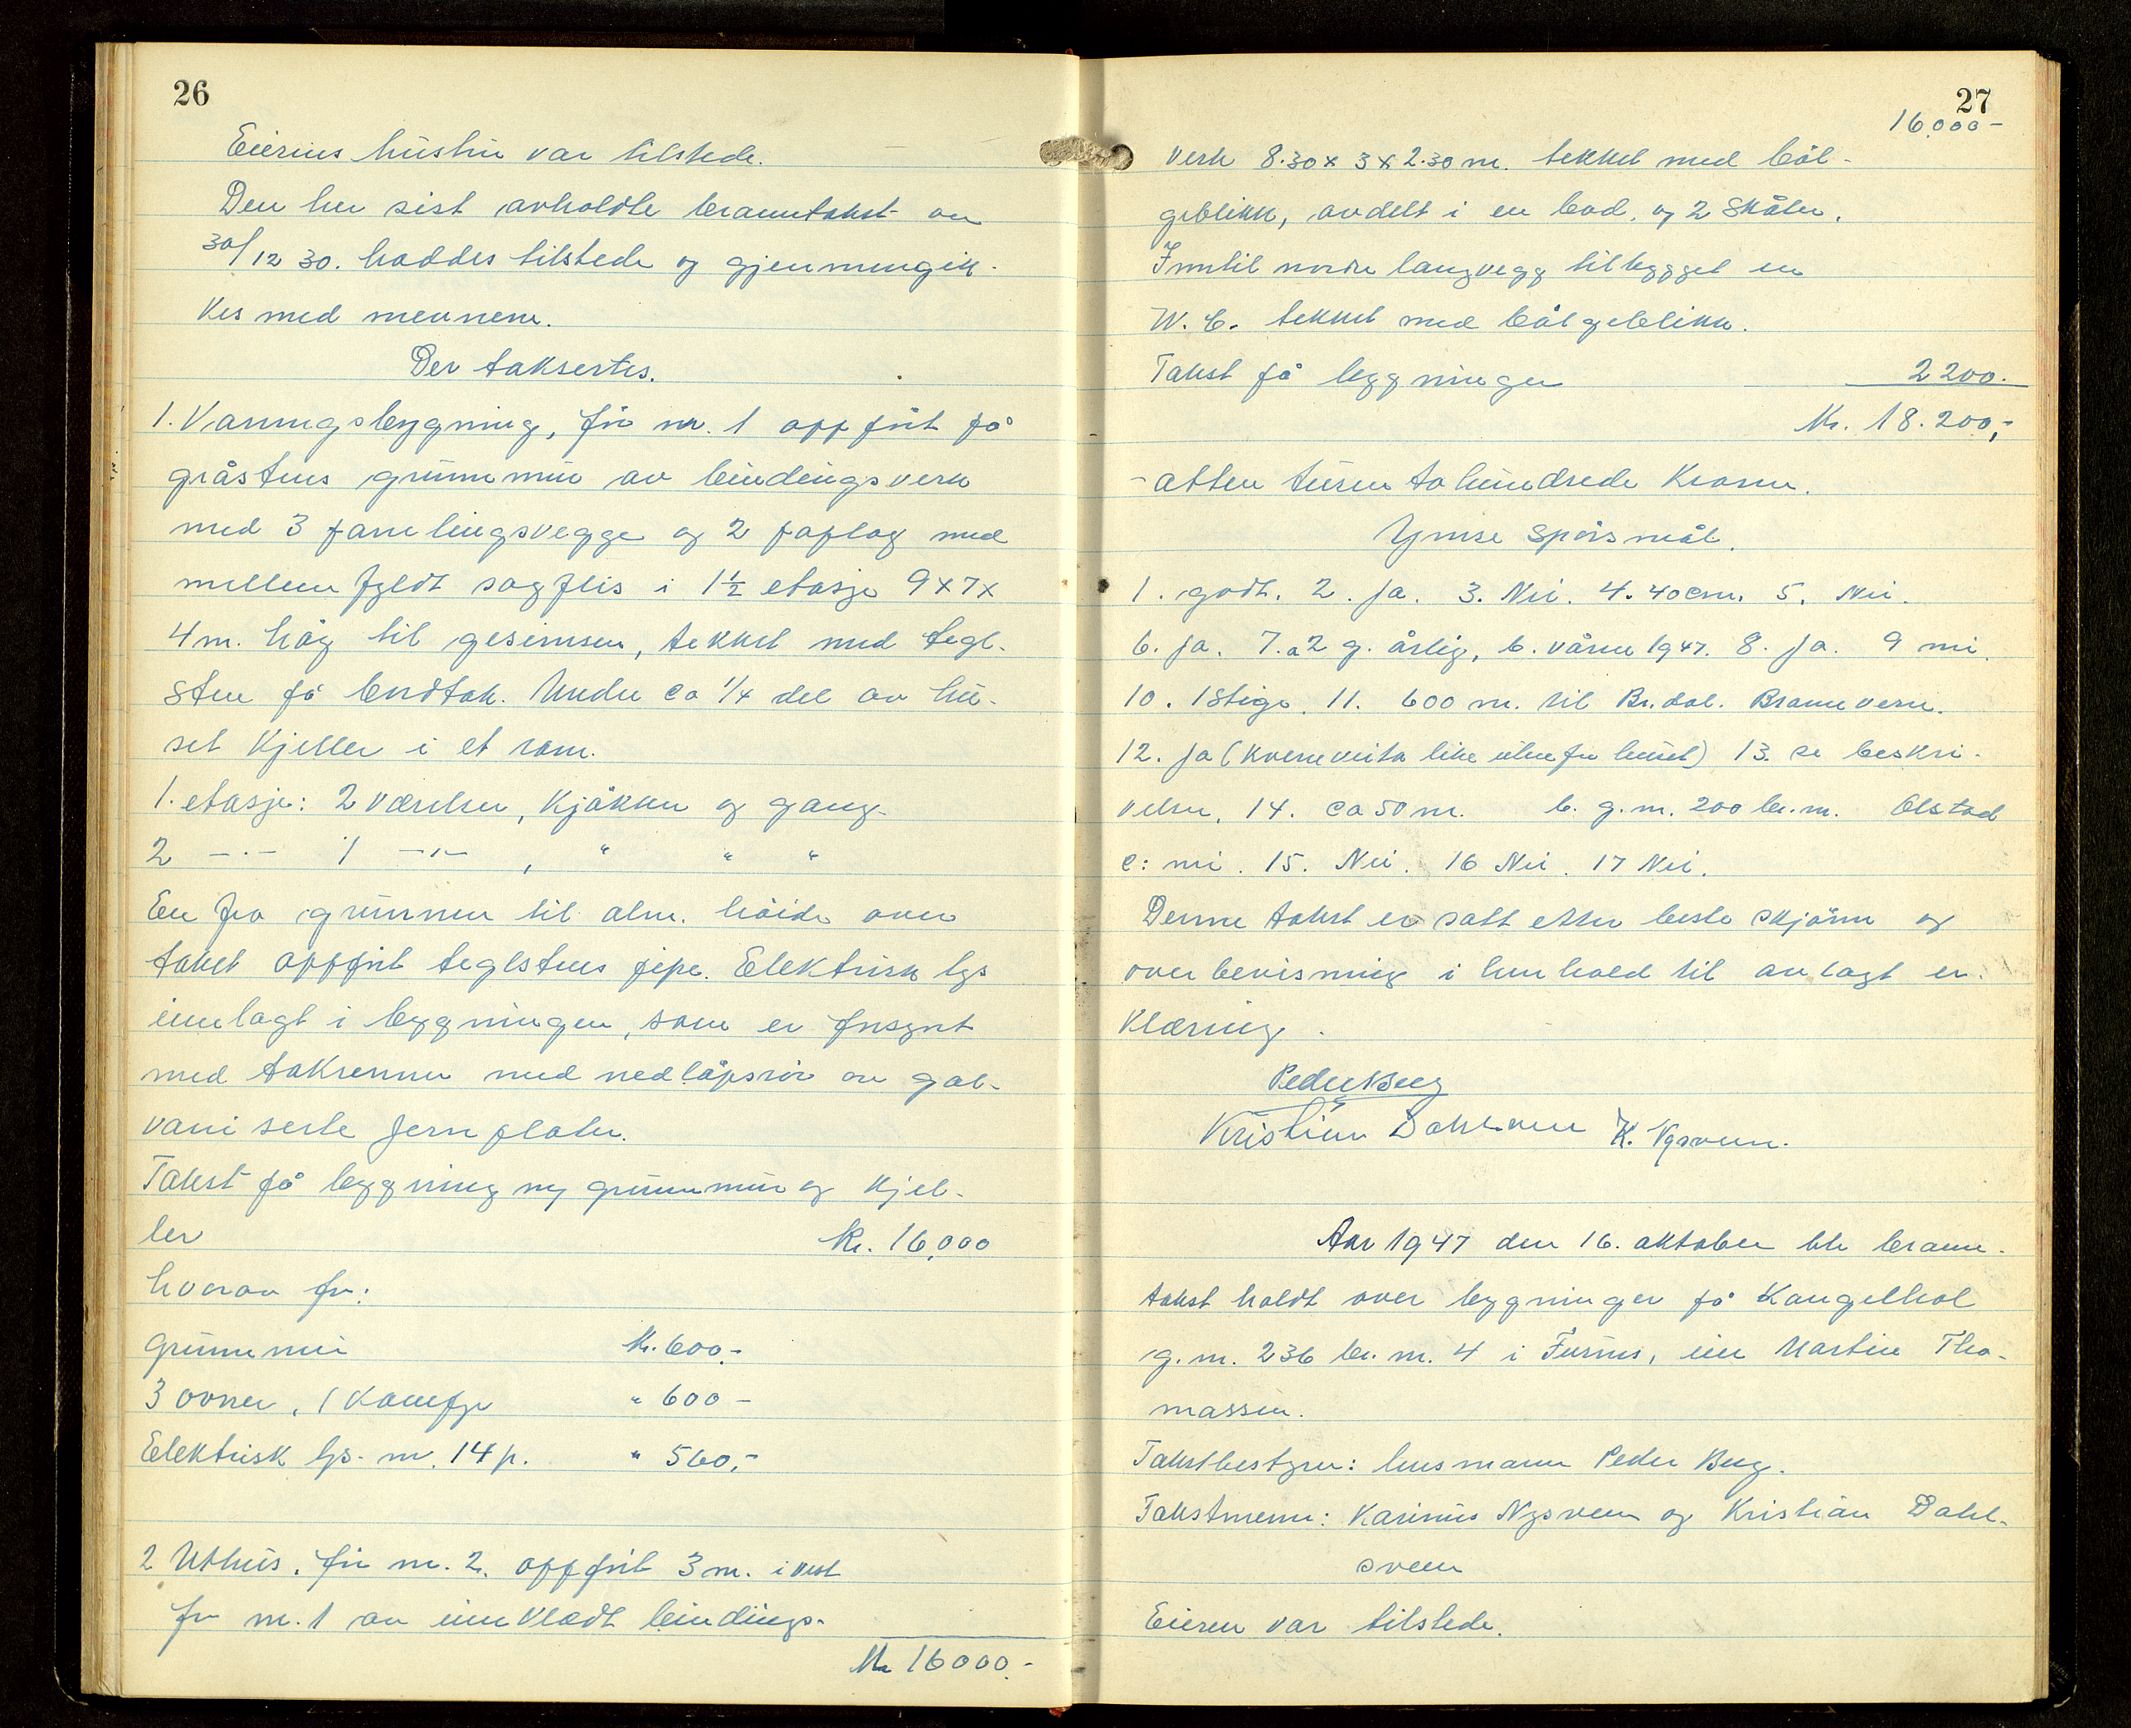 26
Eierens hustru var tilstede.
Den her sist avholdte branntakst av
30/12 30. haddes tilstede og gjennemgik-
kes med mennene.
Der taksertes.
1. Vaaningsbygning, för nr. 1 oppfört på
gråstens grunnmur av bindingsverk
med 3 panelingsvegge og 2 paplag med
mellem fyldt sagflis i 1½ etasje 9x7x
4 m. höy til gesimsen, tekket med tegl-
sten på bordtak. Under ca 1/4 del av hu-
set kjeller i et rom.
1. etasje: 2 værelser, kjökken og gang.
2 -"- 1 -"- , " " "
En fra grunnen til alm. höide over
taket oppfört teglstens pipe. Elektrisk lys
innlagt i bygningen, som er forsynt
med takrenner med nedlöpsrör av gal-
vaniserte jernplater.
Takst på bygning og grunnmur og kjel-
ler Kr. 16,000
hvorav for:
Grunnmur Kr. 600.-
3 ovner, 1 komfyr " 600 -
Elektrisk lys- nr. 14 p. " 560,-
2 Uthus, för nr. 2. oppfört 3 m. i vest
for nr. 1 av innkledt bindings-
Kr 16000.-
27
16.000-
verk 8.30 x 3 x 2.30 m. tekket med böl-
geblikk, avdelt i en bod, og 2 skåler.
Inntil nordre langvegg tilbygget en
W. C. tekket med bölgeblikk.
Takst på bygningen 2200.
Kr. 18.200,-
- atten tusen to hundrede Kroner.
Ymse Spörsmål.
1. godt. 2. Ja. 3. Nei. 4. 40 cm. 5. Nei.
6. Ja. 7. a 2 g. årlig, b. våren 1947. 8. Ja. 9 nei.
10. 1 Stige. 11. 600 m. til Br.dal. Brannvern.
12. Ja (Kverneveita like utenfor huset) 13. se beskri-
velsen, 14. ca 50 m. b. g.nr. 200 br.nr. Olstad
c: nei. 15. Nei. 16 Nei. 17 Nei.
Denne takst er satt etter beste skjönn og
overbevisning i henhold til avlagt er-
klæring.
Peder Berg
Kristian Dahlsveen K. Nysveen.
Aar 1947 den 16. oktober ble brann-
takst holdt over bygninger på Kangelhol
g.nr. 236 br. nr. 4 i Furnes, eier Martin Tho-
massen.
Takstbestyrer: husmann Peder Berg.
Takstmenn: Karinus Nysveen og Kristian Dahl-
sveen
Eieren var tilstede.